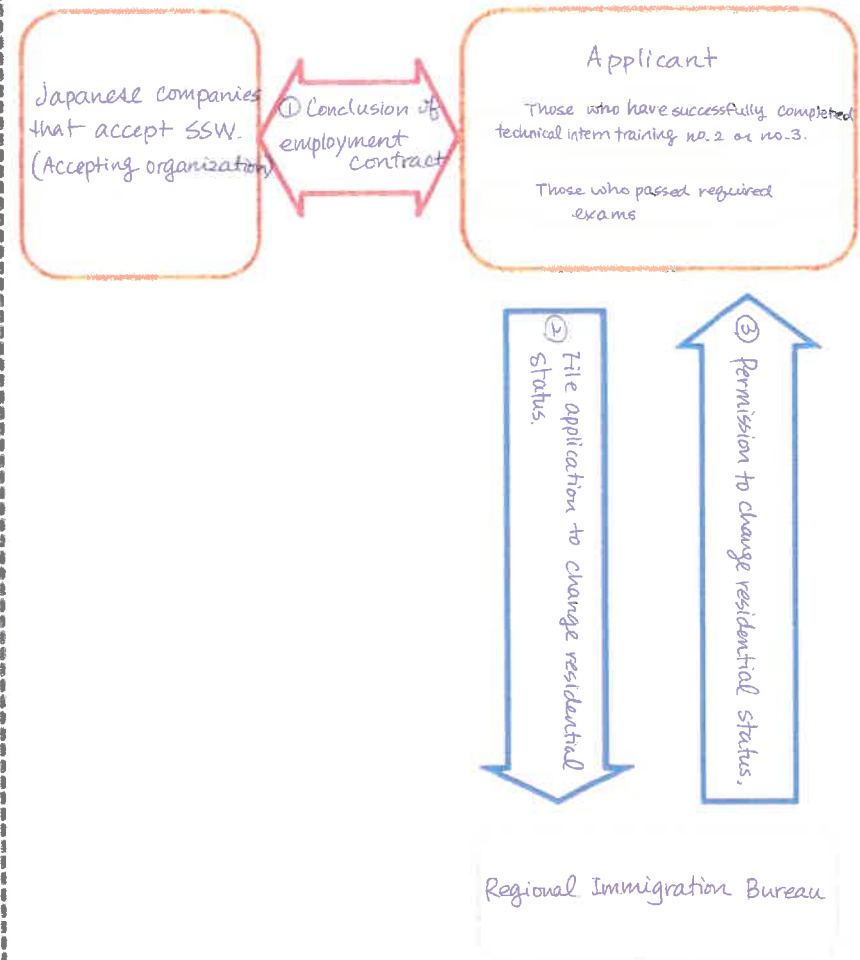 Japanese companies
that accept SSW.
(Accepting organization)
① Conclusion of
employment
contract
Applicant
Those who have successfully completed
technical intern training no.2 or no.3.
Those who passed required
exams
② File application to change residential
status.
③ Permission to change residential status.
Regional Immigration Bureau